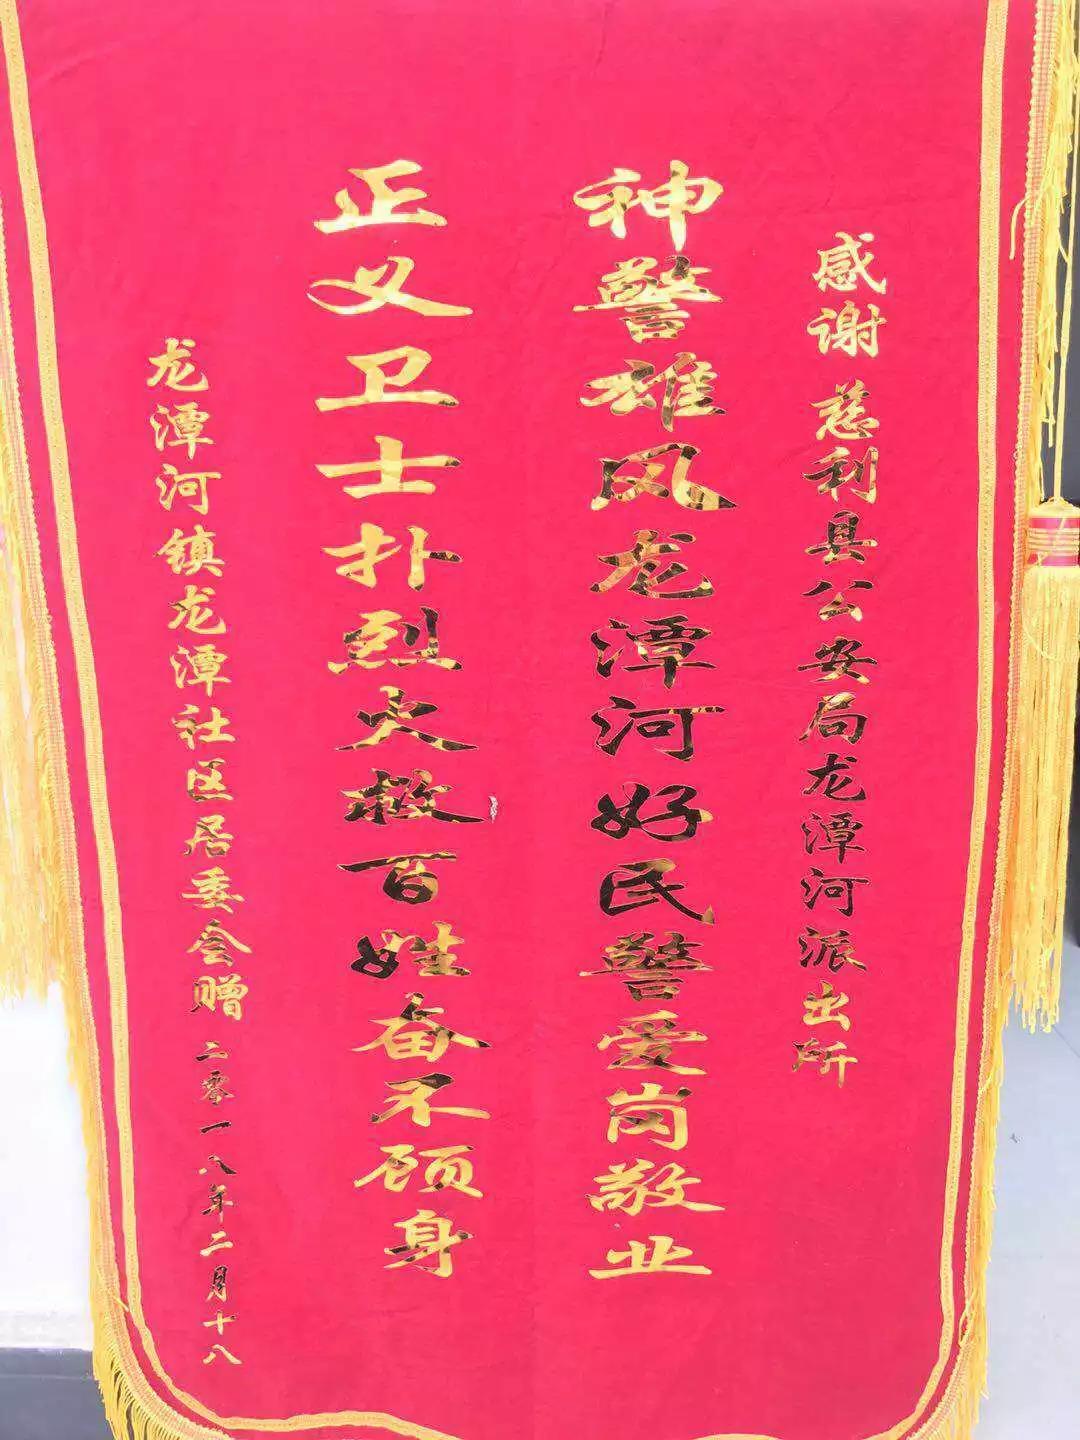 感谢 慈利县公安局龙潭河派出所
神警雄风龙潭河好民警爱岗敬业
正义卫士扑烈火救百姓奋不顾身
龙潭河镇龙潭社区居委会赠 二零一八年二月十八